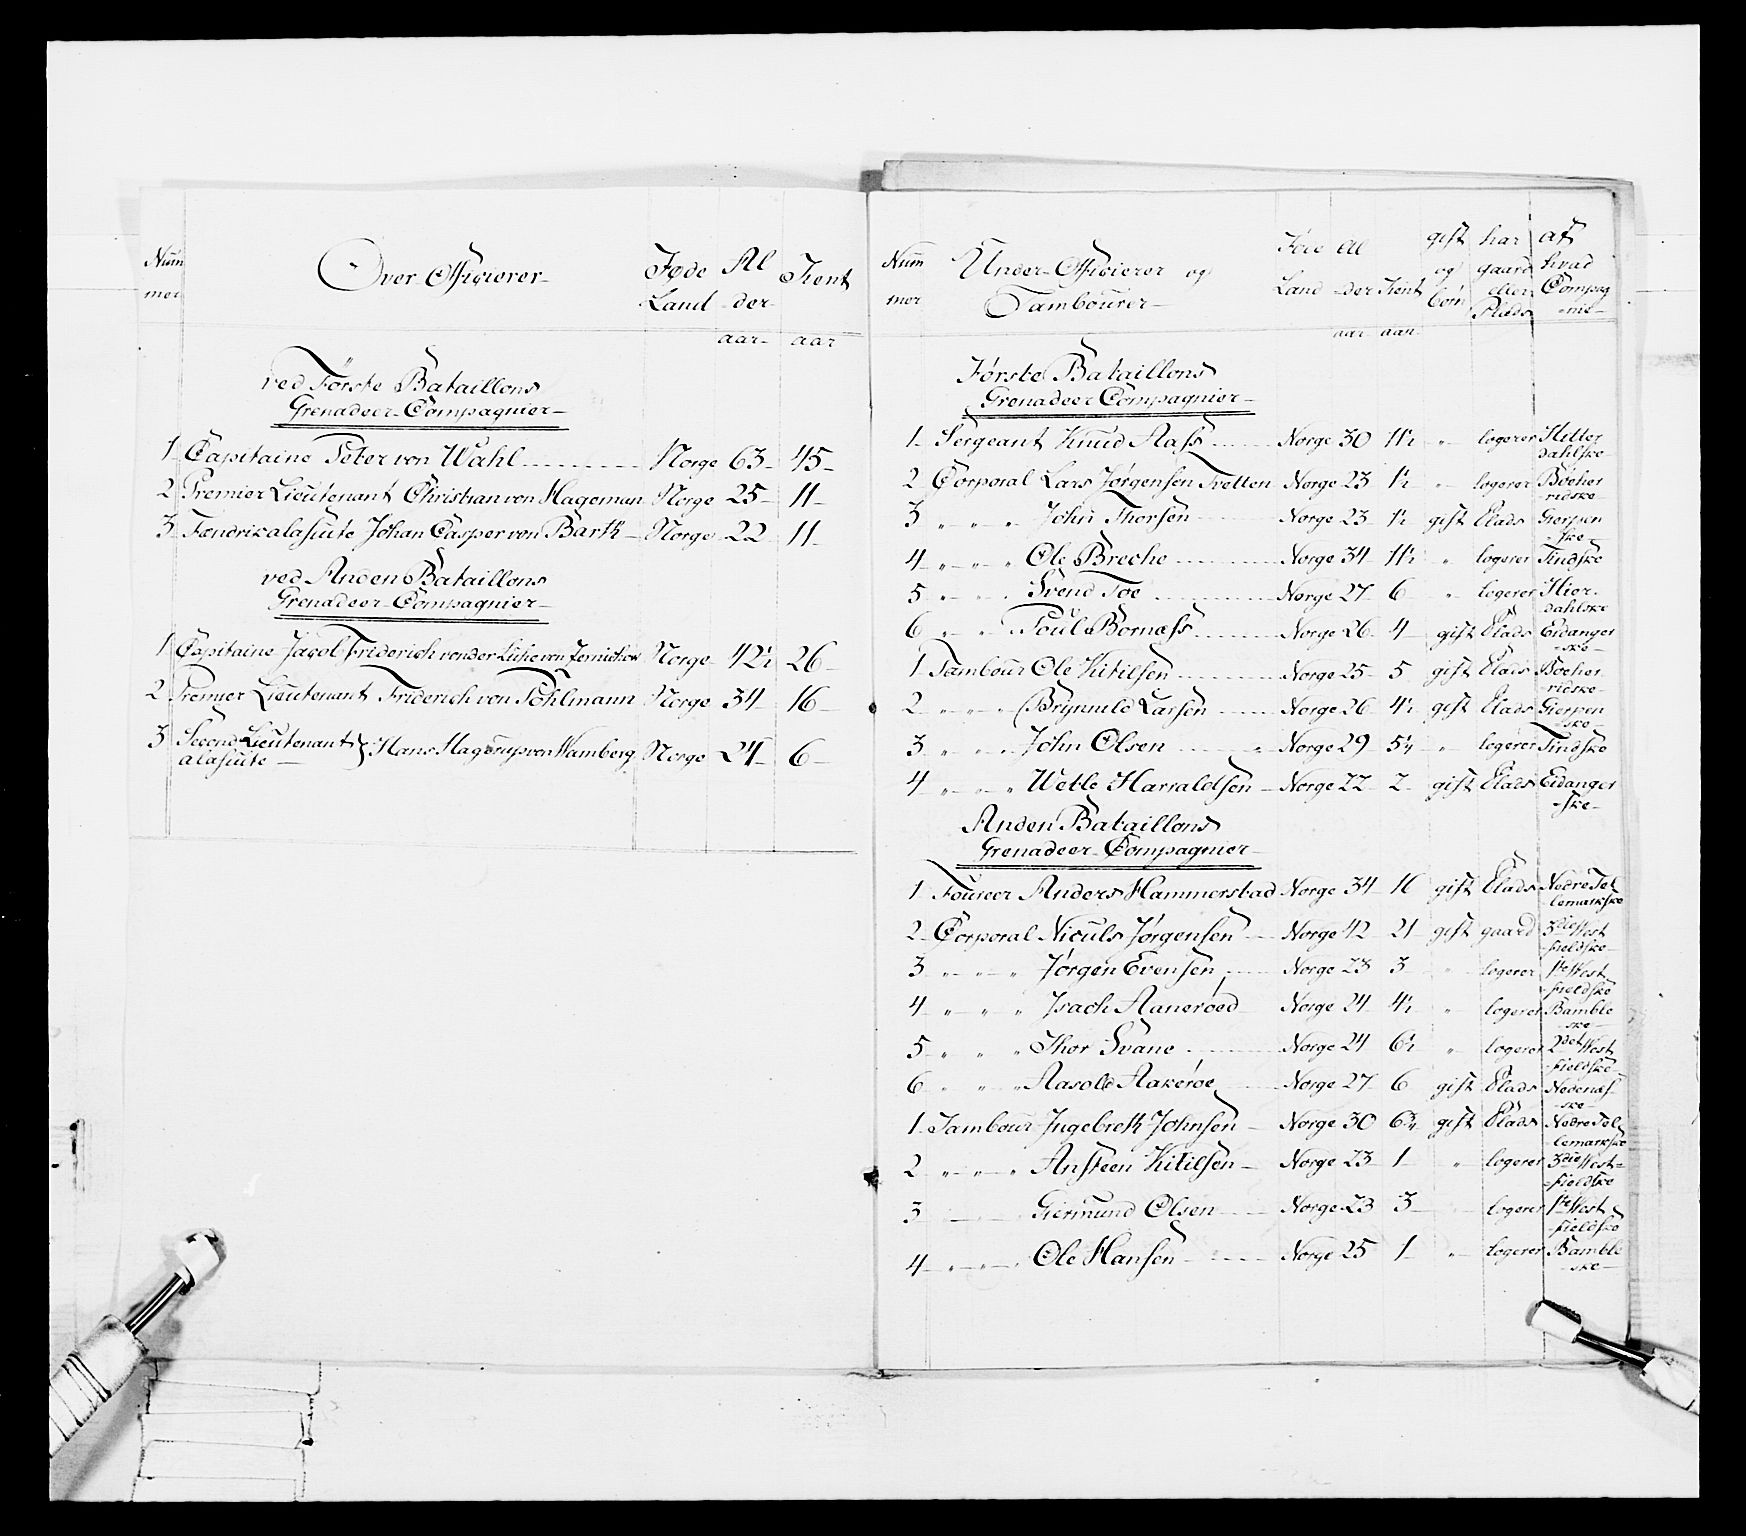 Num mer Over Officierer Føde Land Al der Tient
aar aar
ved Förste Bataillons
Grenadeer-Compagnier
1 Capitaine Peter von Wahl Norge 63 45
2 Premier Lieutenant Christian von Hageman Norge 25 11
3 Fændrik alasuite Johan Casper von Barth Norge 22 11
ved Anden Bataillons
Grenadeer-Compagnier
1 Capitaine Jacob Friderich von der Lühe von Norge 42½ 26
2 Premier Lieutenant Friderich von Pöhlmann Norge 34 16
3 Second Lieutenant alasuite Hans Hagerup von Wamberg Norge 24 6
Num mer Under-Officierer og Tambourer Føde Land Al der Tient gift og börn har gaard eller Plads af hvad Compag nie
aar aar
Første Bataillons
Grenadeer Compagnier
1 Sergeant Knud Aass Norge 30 11½ " logerer Hitter dahlske
2 Corporal Lars Jørgensen Tvetten Norge 23 1½ " logerer Böcher ridske
3 " " " John Thorsen Norge 23 1½ gift Plads Gierpen ske
4 " " " Ole Breche Norge 34 11½ " logerer Tindske
5 " " " Svend Toe Norge 27 6 " logerer Hier dahlske
6 " " " Poul Bornæss Norge 26 4 gift Plads Eidanger ske
1 Tambour Ole Kitilsen Norge 25 5 gift Plads Böcher ridske
2 " " " Brynnild Larsen Norge 26 4½ gift Plads Gierpen ske
3 " " " John Olsen Norge 29 5¼ " logerer Tindske
4 " " " Wetle Harraldsen Norge 22 2 gift Plads Eidanger ske
Anden Bataillons
Grenadeer-Compagnier
1 Foureer Anders Hammerstad Norge 34 16 gift Plads Nedre Tel lemarkske
2 Corporal Niculs Jørgensen Norge 42 21 gift gaard 3die West fieldske
3 " " " Jørgen Evensen Norge 23 3 " logerer 1te West fieldske
4 " " " Isach Aaneröed Norge 24 4½ " logerer Bamble ske
5 " " " Thor Svane Norge 24 6½ " logerer 2det West fieldske
6 " " " Aasold Aakeröe Norge 27 6 gift Plads Nedenæs ske
1 Tambour Ingebreth Johnsen Norge 30 6¾ gift Plads Nedre Tel lemarkske
2 " " " Ansteen Kitilsen Norge 23 1 " logerer 3die West fieldske
3 Giermund Olsen Norge 23 3 logerer 1te West fieldske
4 " " " Ole Hansen Norge 25 1 " logerer Bamble ske